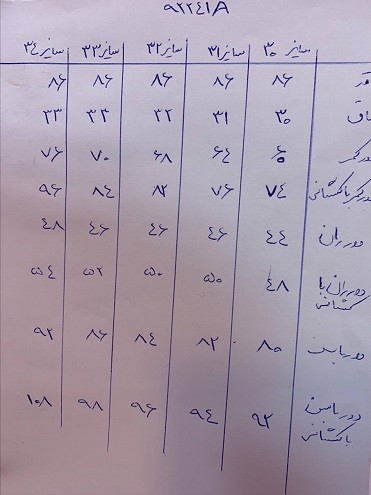 ۹۲۲۴۱A
سایز ۳۰ سایز ۳۱ سایز ۳۲ سایز ۳۳ سایز ۳۴
قد ۸۶ ۸۶ ۸۶ ۸۶ ۸۶
فاق ۳۰ ۳۱ ۳۲ ۳۳ ۳۳
دور کمر ۶۰ ۶۴ ۶۸ ۷۰ ۷۶
دور کمر با کشسانی ۷۴ ۷۶ ۸۲ ۸۴ ۹۶
دور ران ۴۴ ۴۶ ۴۶ ۴۶ ۴۸
دور ران با کشسانی ۴۸ ۵۰ ۵۰ ۵۲ ۵۴
دور باسن ۸۰ ۸۲ ۸۴ ۸۶ ۹۲
دور باسن با کشسانی ۹۲ ۹۴ ۹۶ ۹۸ ۱۰۸